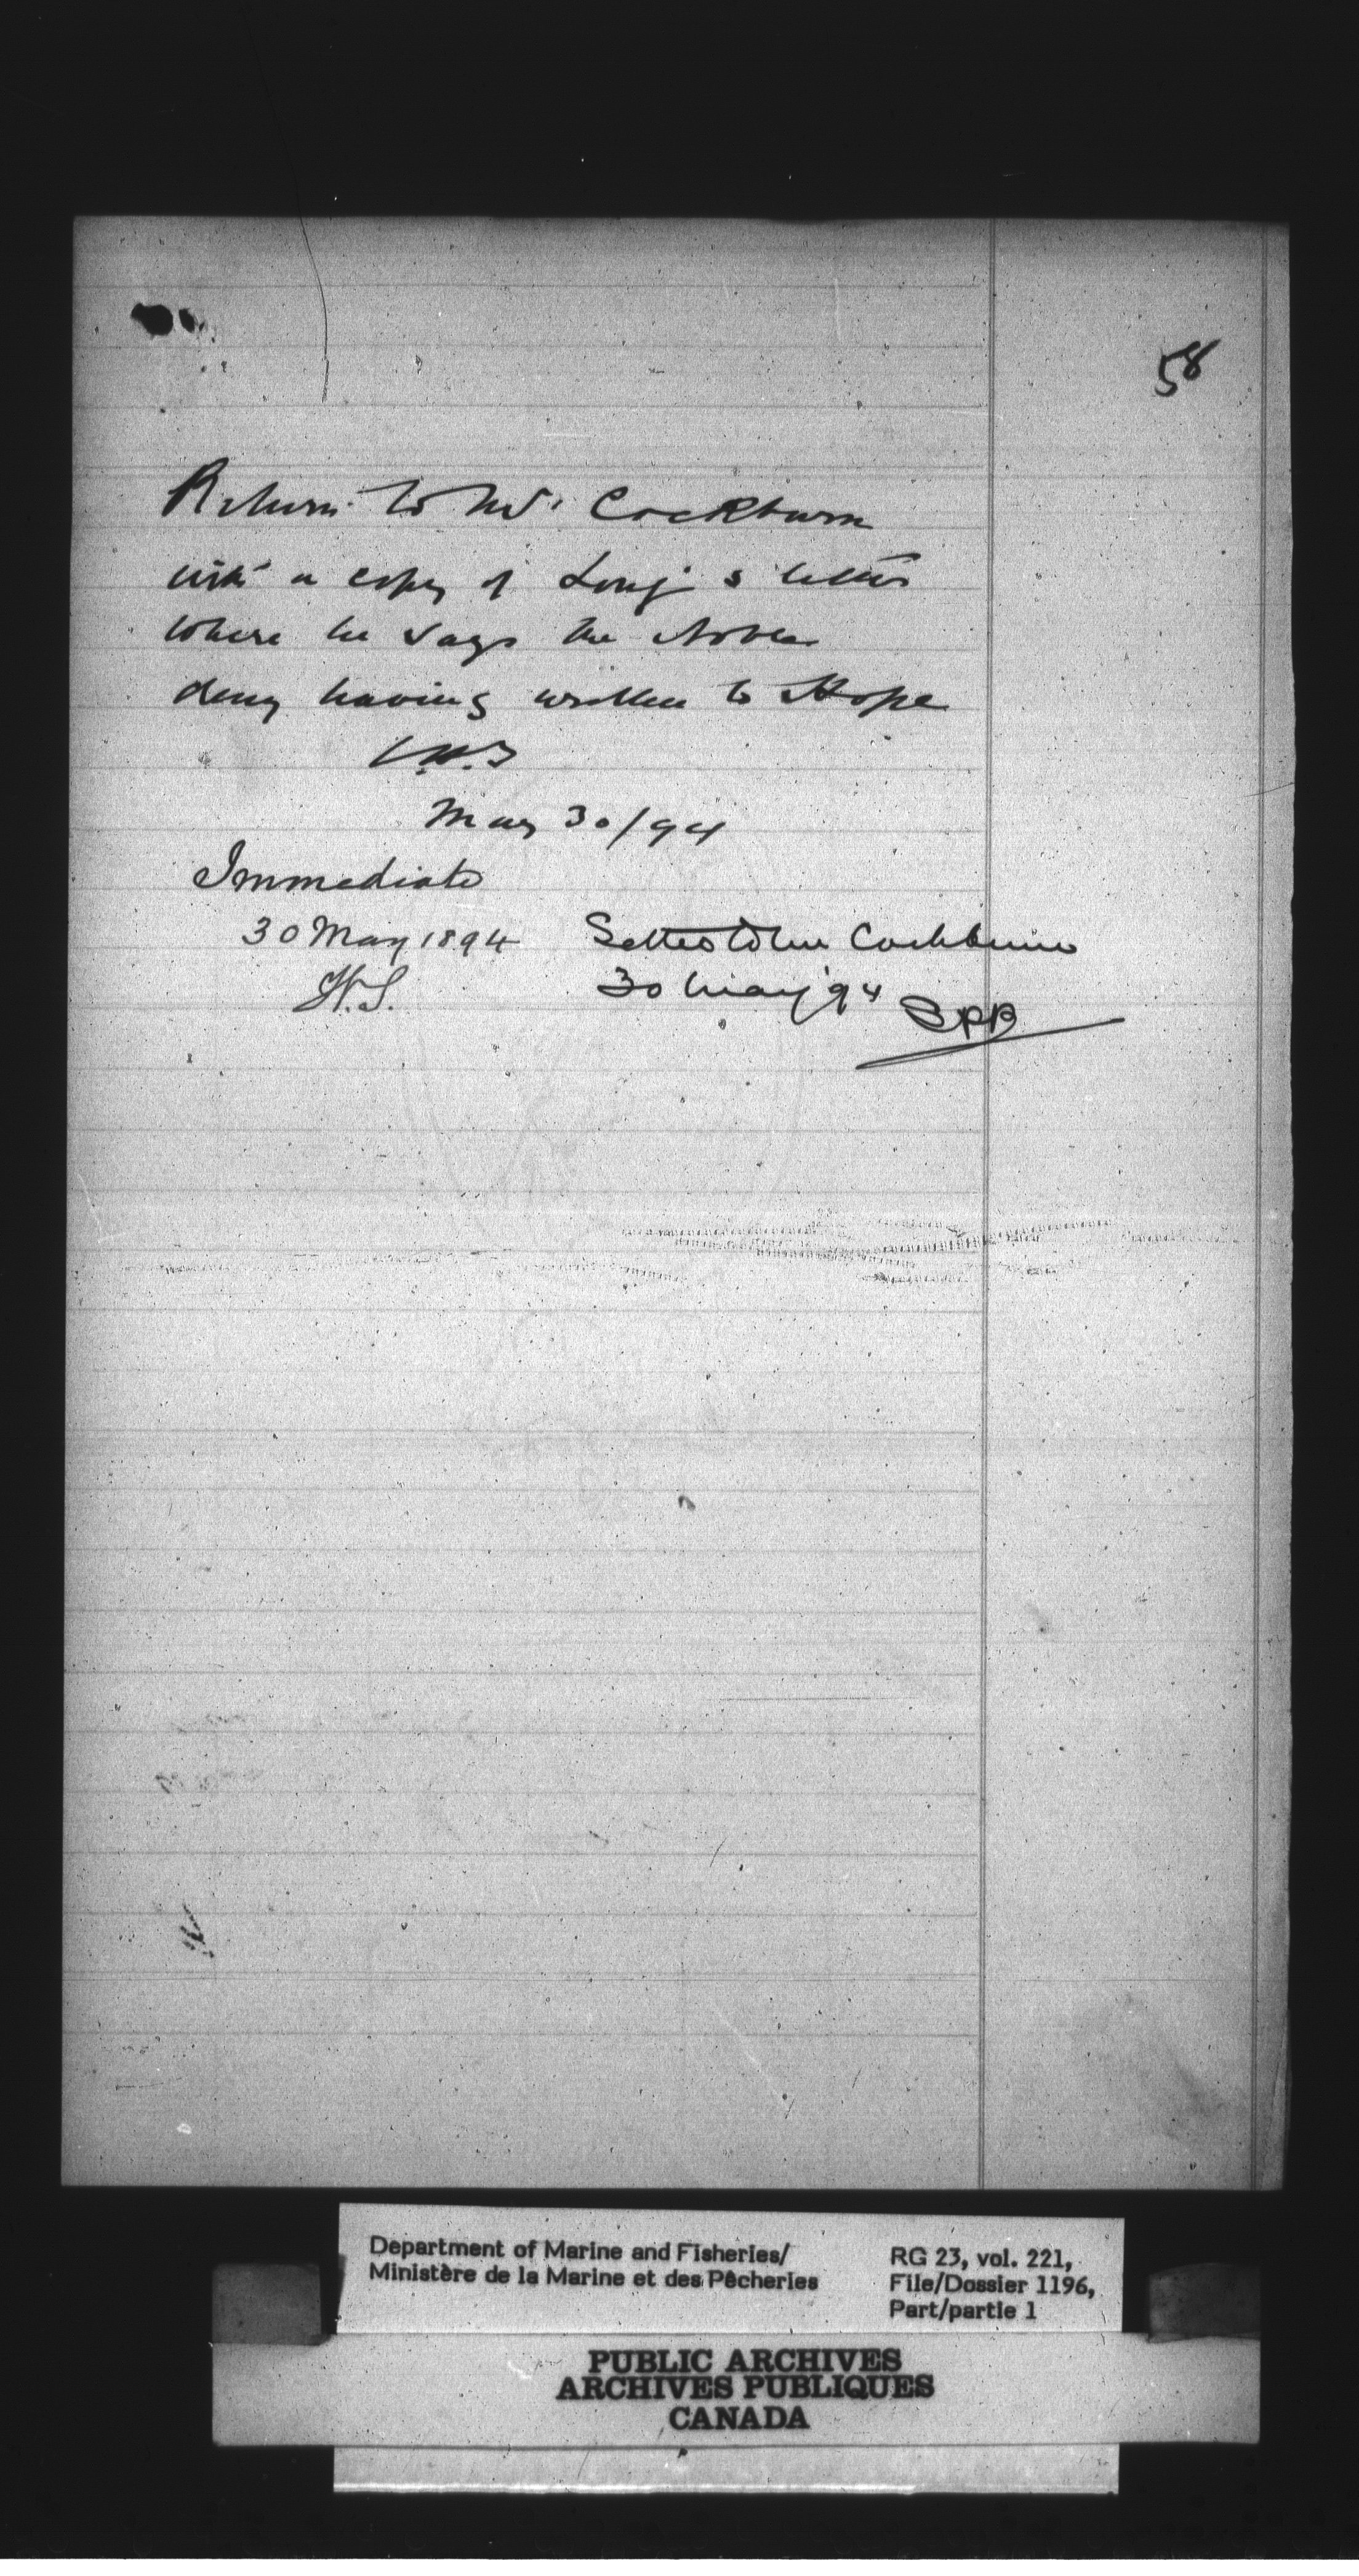 58
Return to Mr. Cockburn
with a copy of Long's letter
where he says the Nobles
deny having written to Hope
May 30/94
Immediate
30 May 1894
H.S.
Cockburn
30 May '94
SPB
Department of Marine and Fisheries/
Ministère de la Marine et des Pêcheries
RG 23, vol. 221,
File/Dossier 1196,
Part/partie 1
PUBLIC ARCHIVES
ARCHIVES PUBLIQUES
CANADA